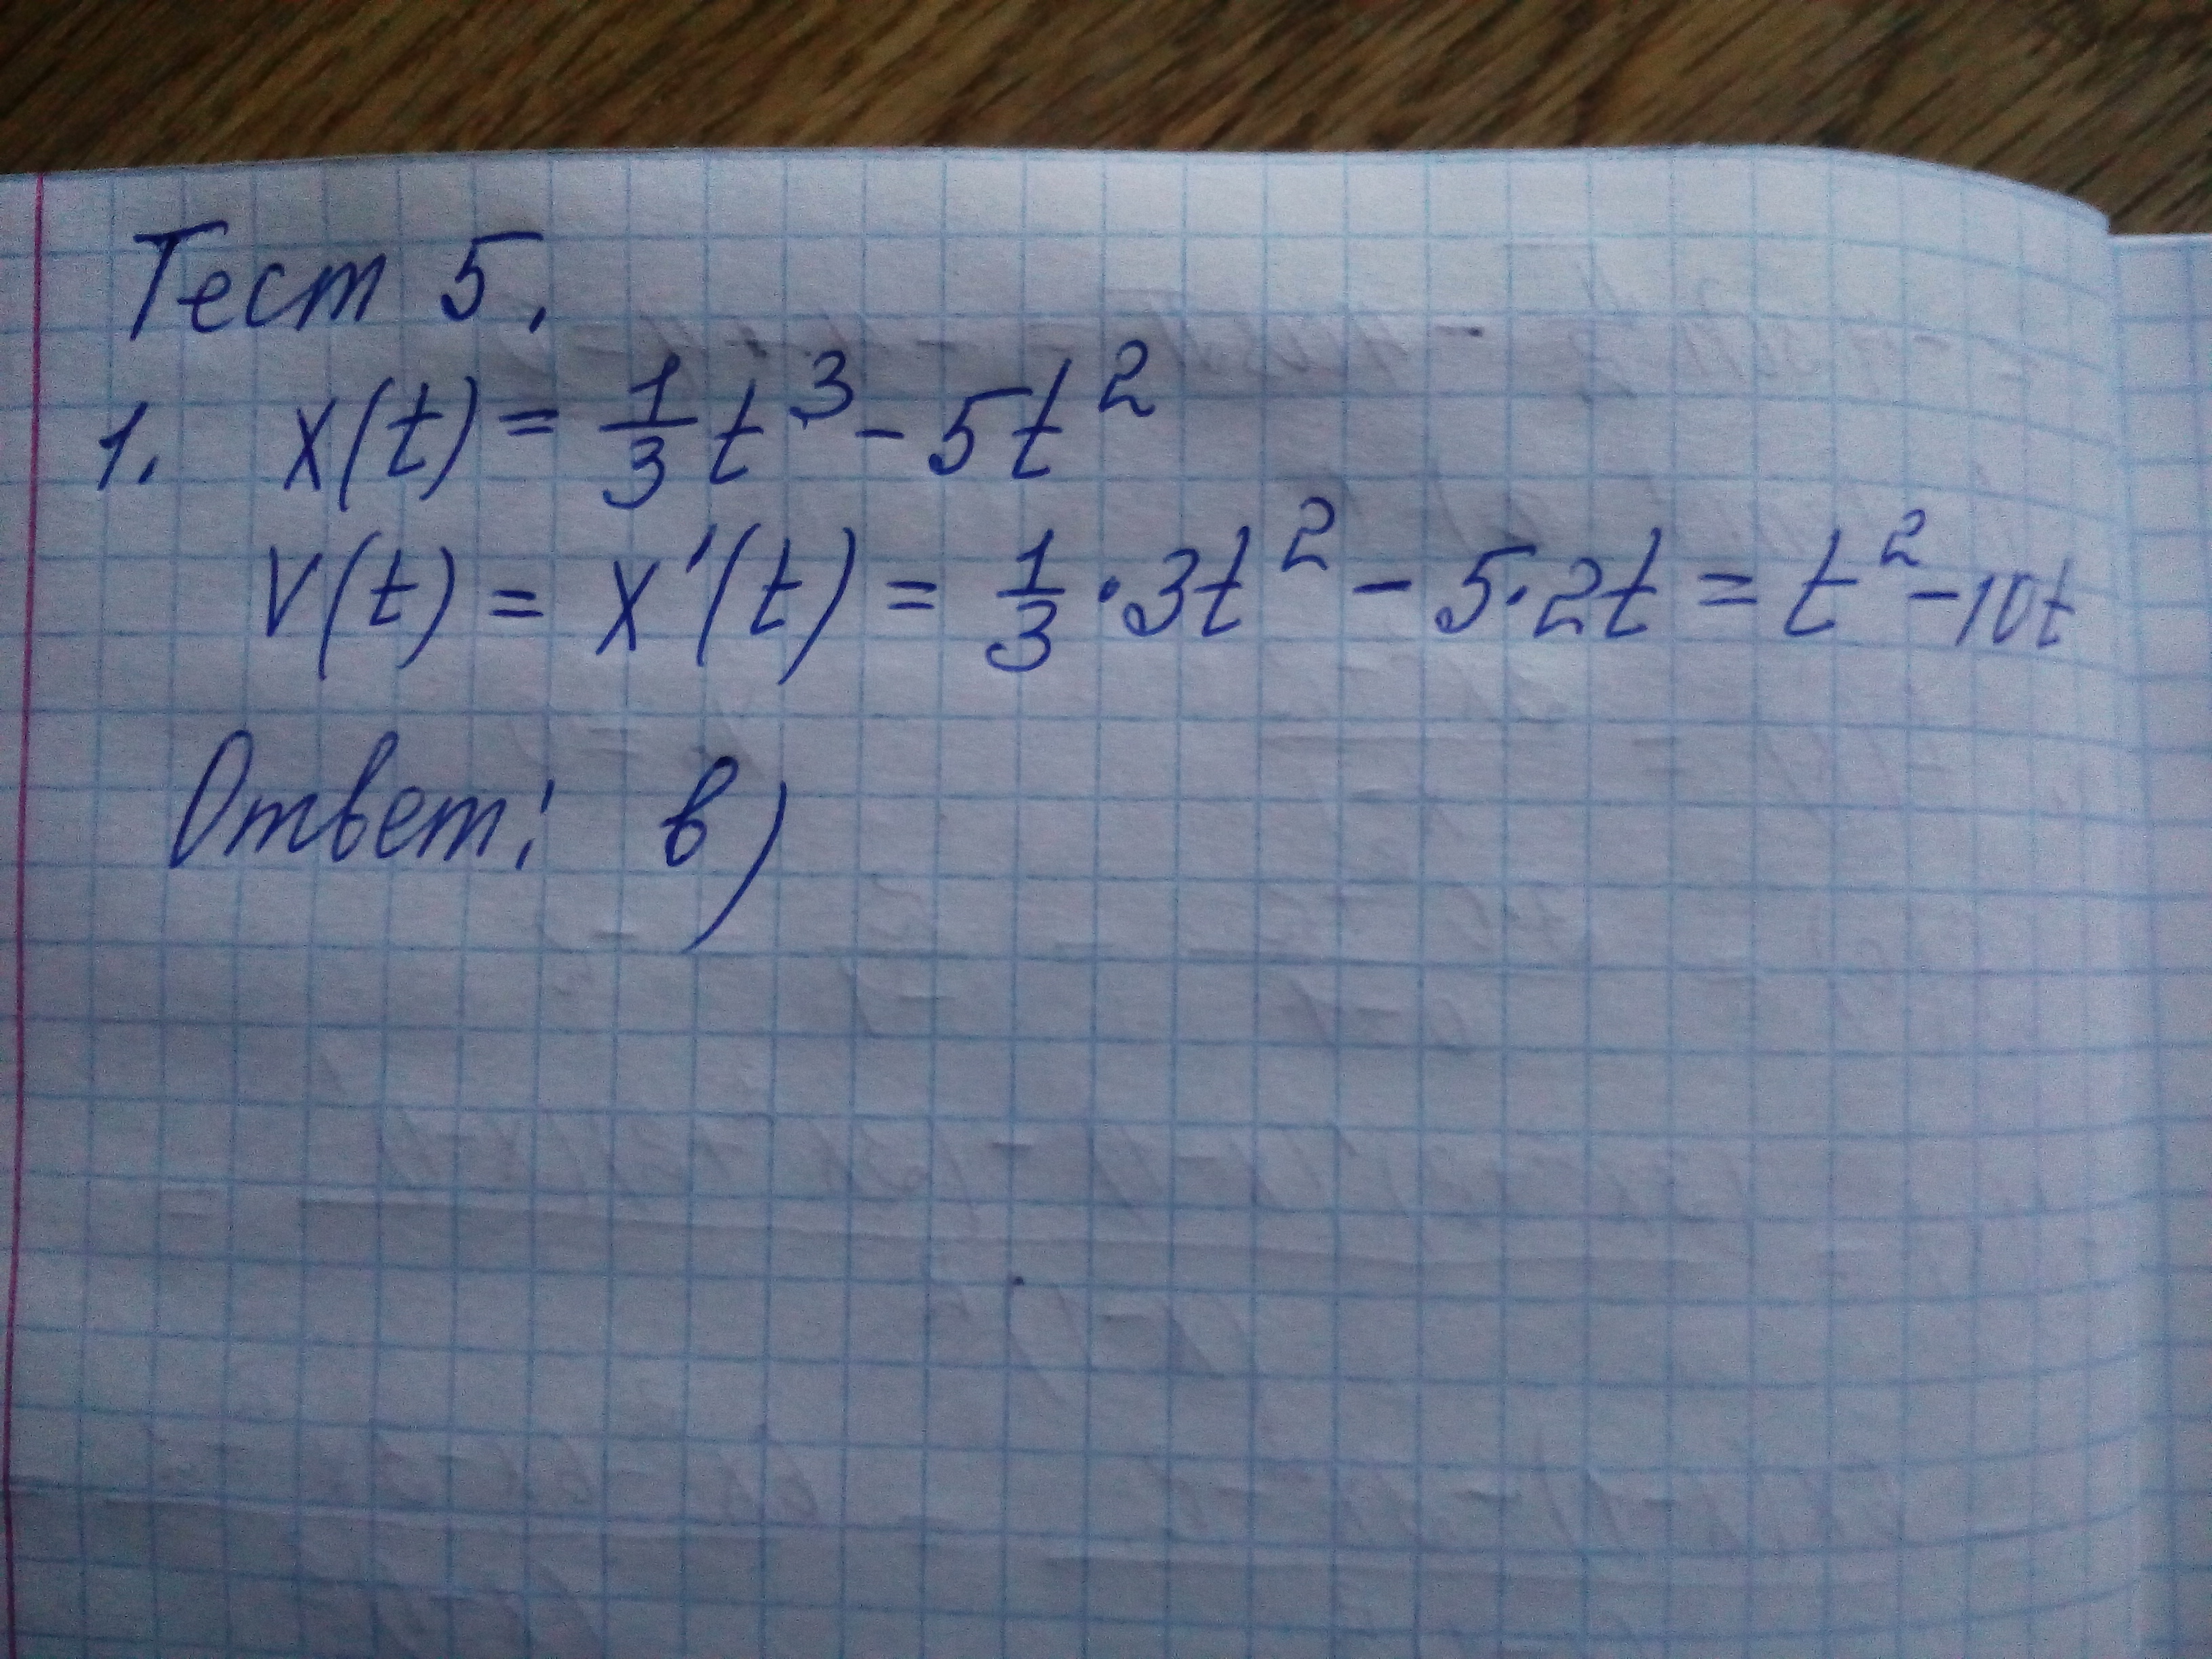 Тест 5.
1. x(t) = 1/3 t³ - 5t²
v(t) = x'(t) = 1/3 · 3t² - 5·2t = t² - 10t
Ответ: в)